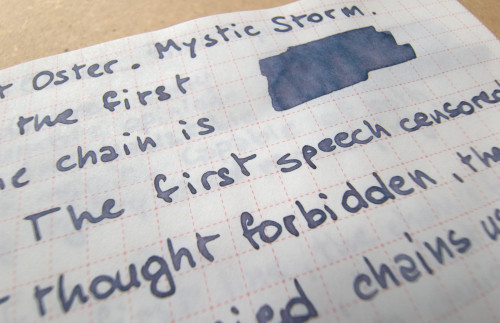 Oster. Mystic Storm.
the first
chain is
The first speech censored
thought forbidden, the
chains